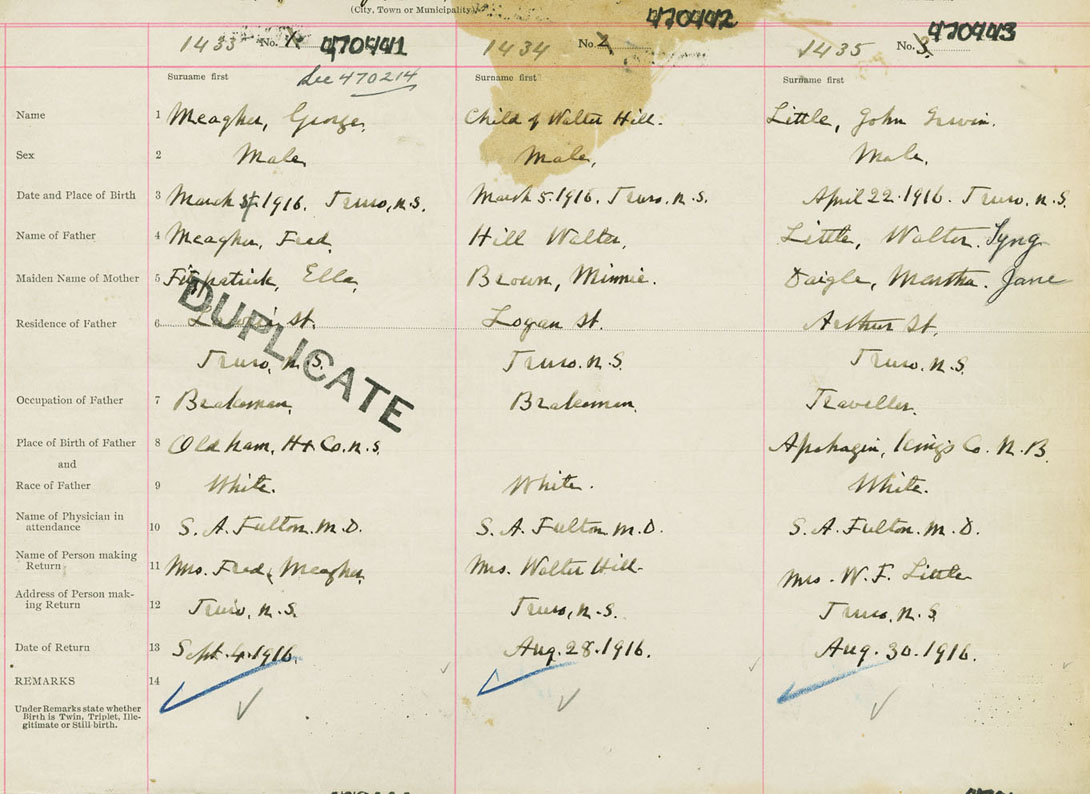 (City, Town or Municipality)
1433 No. 1 470441
1434 No. 2 470442
1435 No. 3. 470443
Surname first See 470214
Surname first
Surname first
Name 1 Meagher, George. Child of Walter Hill. Little, John Erwin.
Sex 2 Male Male, Male.
Date and Place of Birth 3 March 5, 1916. Truro, N.S. March 5. 1916. Truro. N.S. April 22. 1916. Truro. N.S.
Name of Father 4 Meagher, Fred. Hill Walter, Little, Walter. Syng
Maiden Name of Mother 5 Fitzpatrick, Ella, Brown, Minnie. Daigle, Martha. Jane
DUPLICATE
Residence of Father 6 St. Logan St. Arthur St.
Truro, N.S. Truro. N.S. Truro. N.S.
Occupation of Father 7 Brakeman, Brakeman. Traveller.
Place of Birth of Father 8 Oldham, Hx Co. N.S. Apohaqin, Kings Co. N.B.
and
Race of Father 9 White. White. White.
Name of Physician in
attendance 10 S. A. Fulton M.D. S. A. Fulton M.D. S. A. Fulton. M.D.
Name of Person making
Return 11 Mrs. Fred, Meagher Mrs. Walter Hill. Mrs. W. F. Little
Address of Person mak-
ing Return 12 Truro, N.S. Truro, N.S. Truro, N.S.
Date of Return 13 Sept. 4. 1916. Aug. 28. 1916. Aug. 30. 1916.
REMARKS 14
Under Remarks state whether
Birth is Twin, Triplet, Ille-
gitimate or Still-birth.